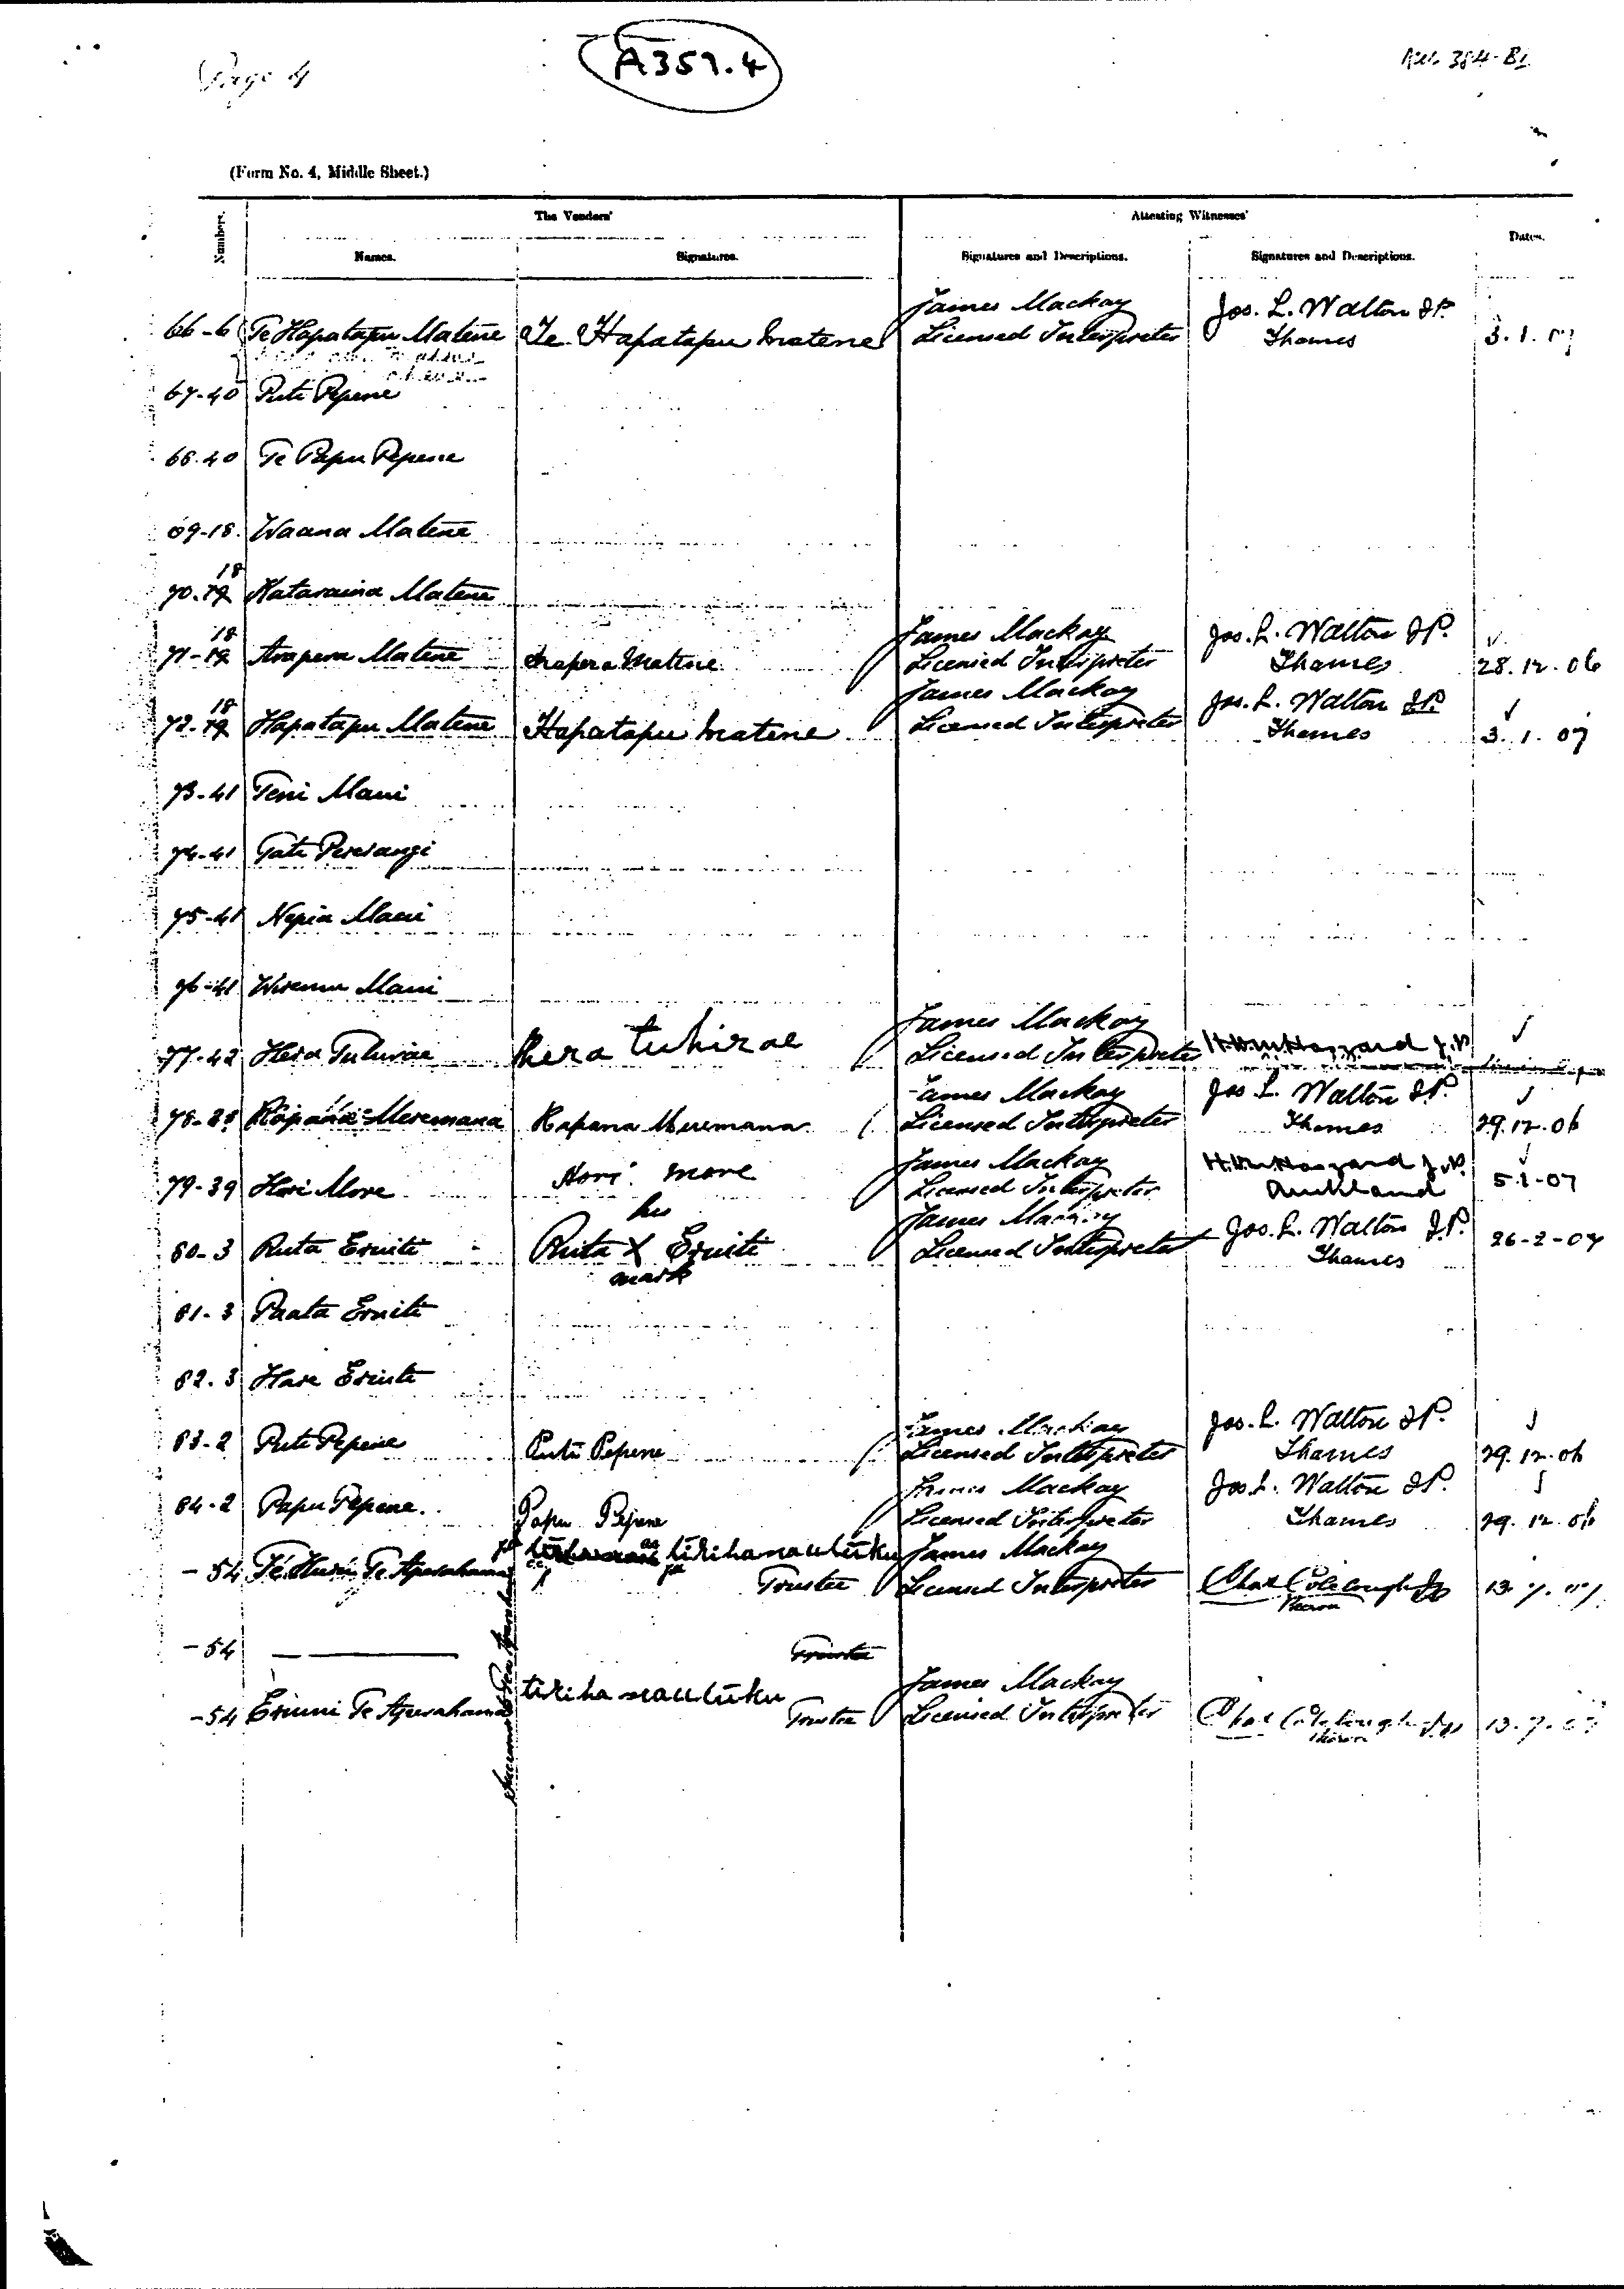 Page 4
A357.4
(Form No. 4, Middle Sheet.)
Numbers.
The Vendors'
Attesting Witnesses'
Dates.
Names.
Signatures.
Signatures and Descriptions.
Signatures and Descriptions.
66-6 Te Hapatapu Matene Te Hapatapu Matene James Mackay Licensed Interpreter Jos. L. Walton J.P. Thames 3.1.07
67-40 Puti Pepene
68.40 Te Papu Pepene
69-18. Waana Matene
70. 18 Kataraina Matene
71- 18 Arapera Matene Arapera Matene James Mackay Licensed Interpreter Jos. L. Walton J.P. Thames 28.12.06
72. 18 Hapatapu Matene Hapatapu Matene James Mackay Licensed Interpreter Jos. L. Walton J.P. Thames 3.1.07
73-41 Teni Maui
74-41
75-41 Nepia Maui
76-41 Wiremu Maui
77-42 Hera Tuhirae Hera tuhirae James Mackay Licensed Interpreter
78-28 Rapana Meremana Rapana Meremana James Mackay Licensed Interpreter Jos L. Walton J.P. Thames 29.12.06
79-39 Hori More Hori more James Mackay Licensed Interpreter J.P. Auckland 5-1-07
80-3 Ruita Eruiti his Ruita X Eruiti mark James Mackay Licensed Interpreter Jos. L. Walton J.P. Thames 26-2-07
81-3 Paata Eruiti
82.3 Hare Eruiti
83-2 Puti Pepene Puti Pepene James Mackay Licensed Interpreter Jos. L. Walton J.P. Thames 29.12.06
84-2 Papu Pepene. Papu Pepene James Mackay Licensed Interpreter Jos. L. Walton J.P. Thames 29.12.06
-54 Te Aperahama Trustee James Mackay Licensed Interpreter 13.7.07
-54 Trustee
-54 Eruini Te Aperahama Trustee James Mackay Licensed Interpreter 13.7.07